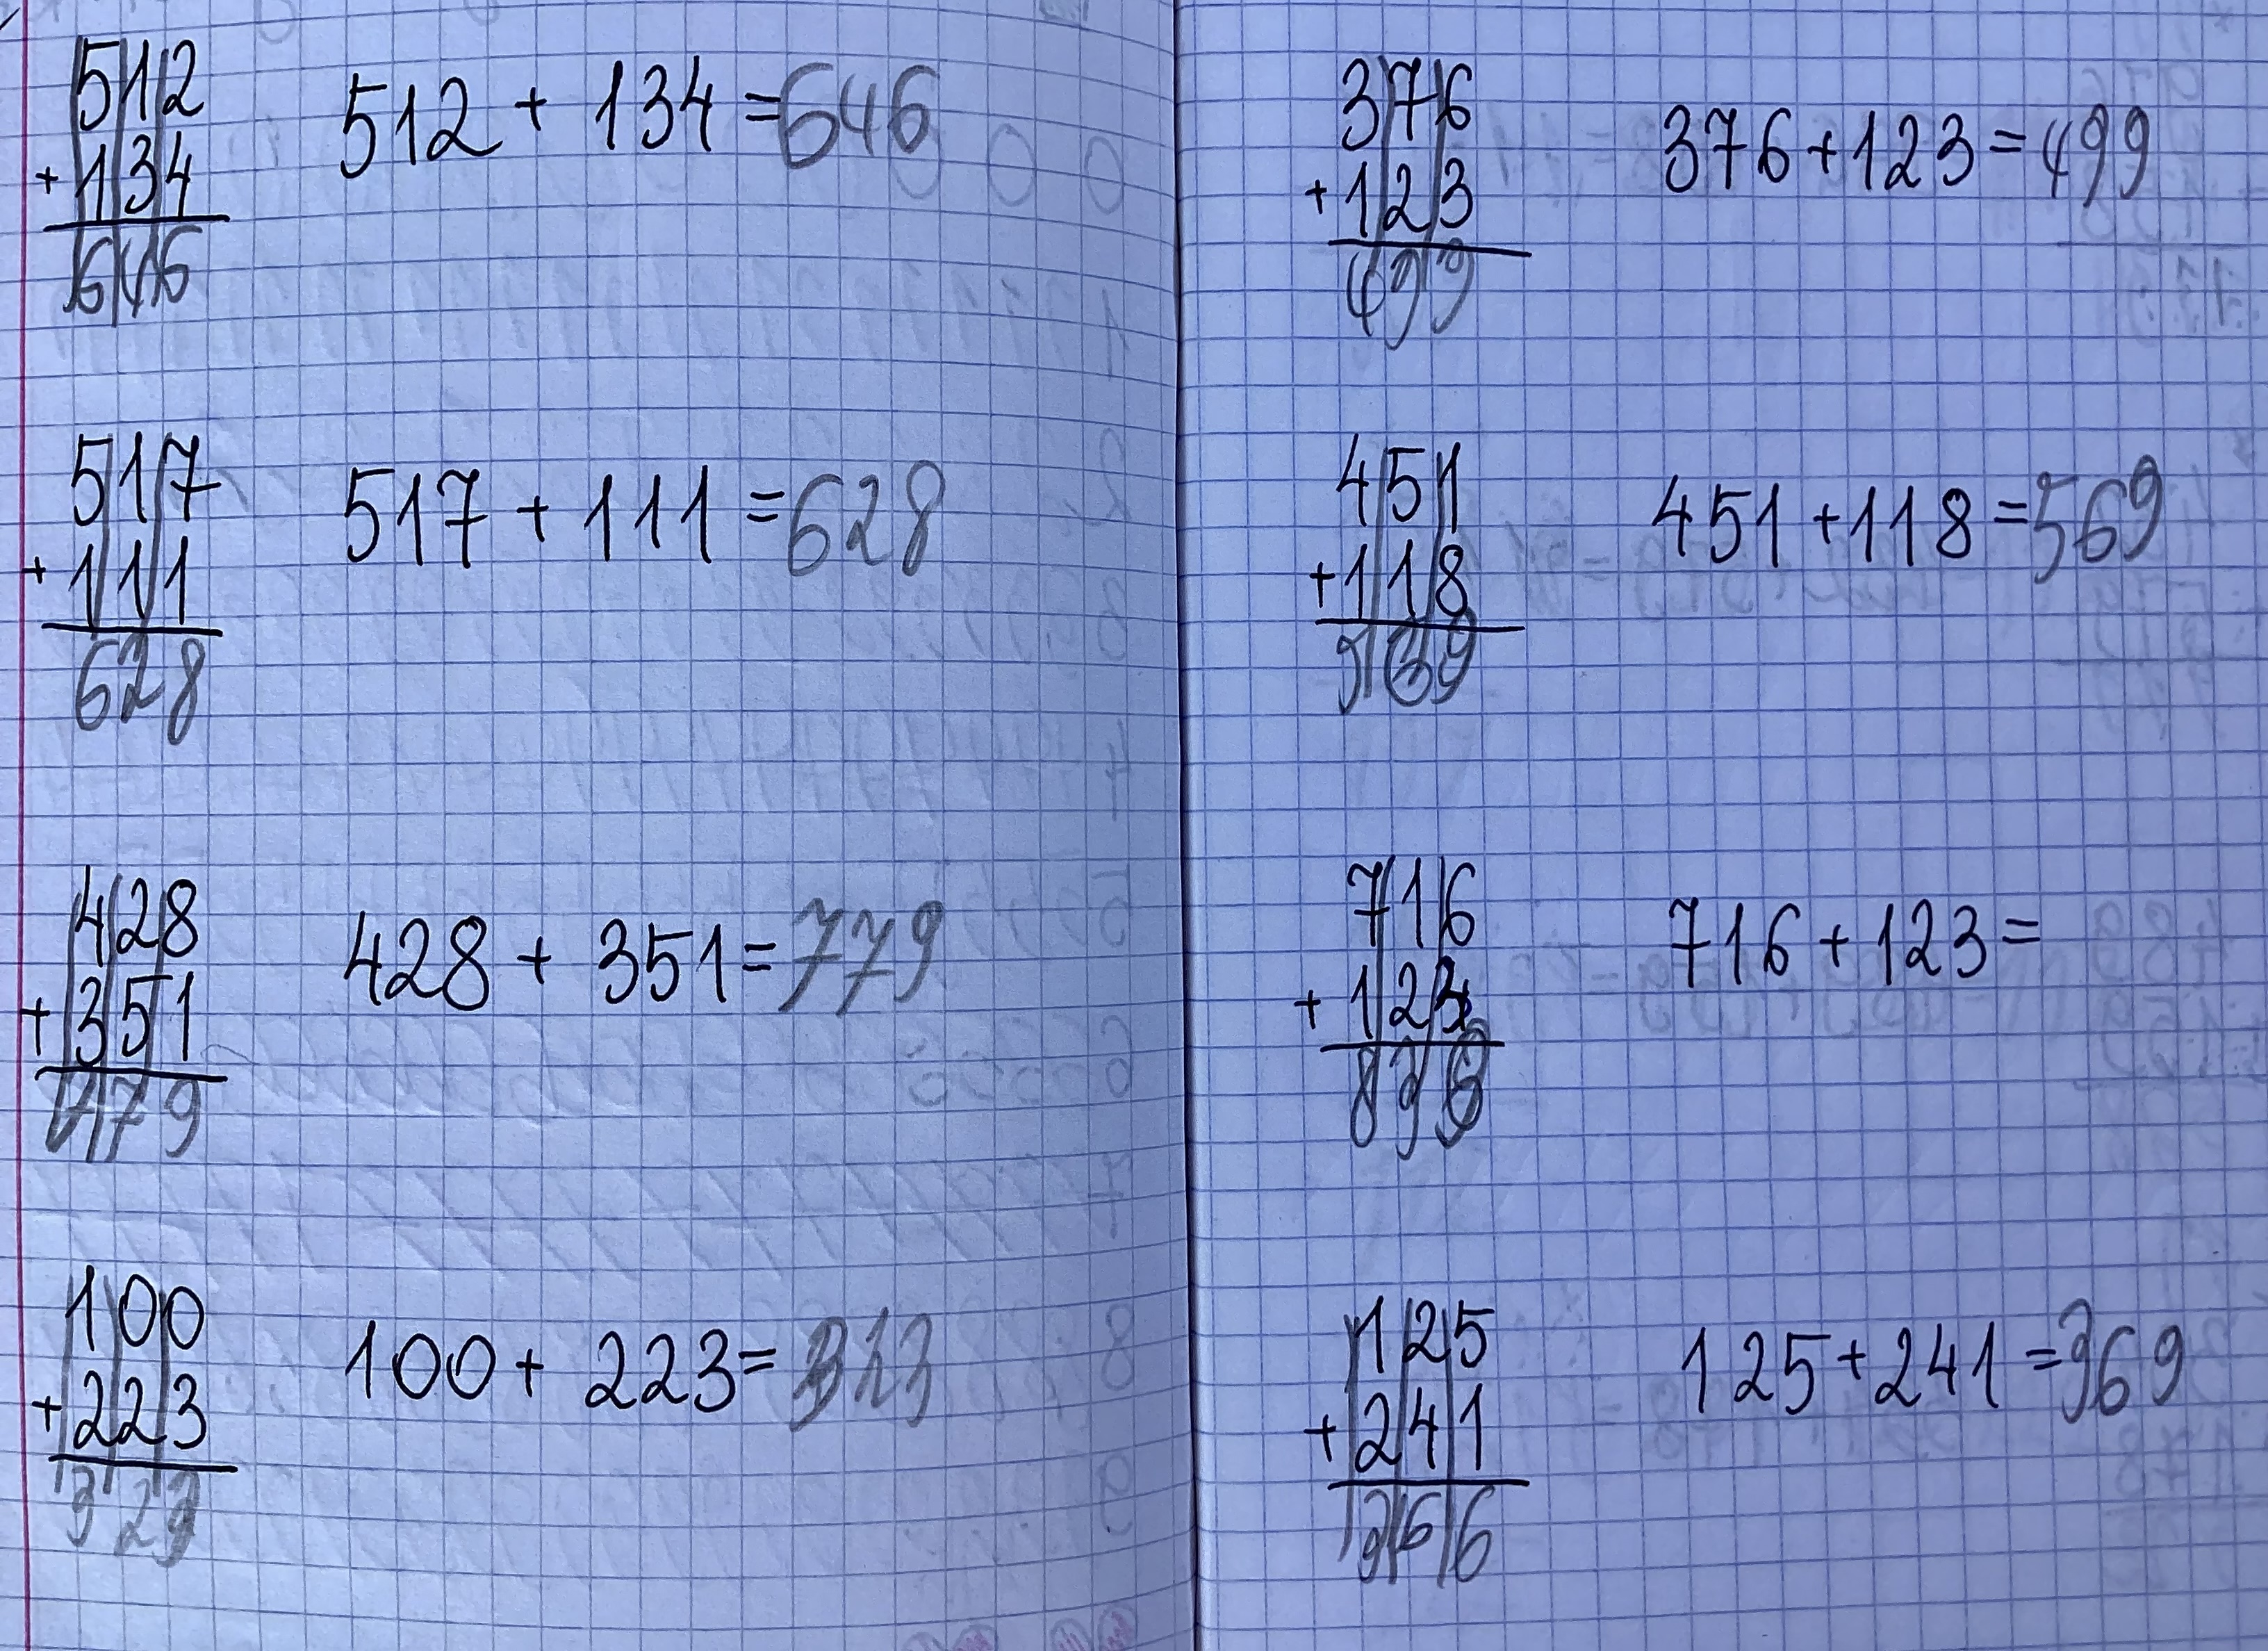 512
+134
646
512 + 134 = 646
517
+111
628
517 + 111 = 628
428
+351
779
428 + 351 = 779
100
+223
323
100 + 223 = 313
376
+123
499
376 + 123 = 499
451
+118
451 + 118 = 569
716
716 + 123 =
125
+241
366
125 + 241 = 369